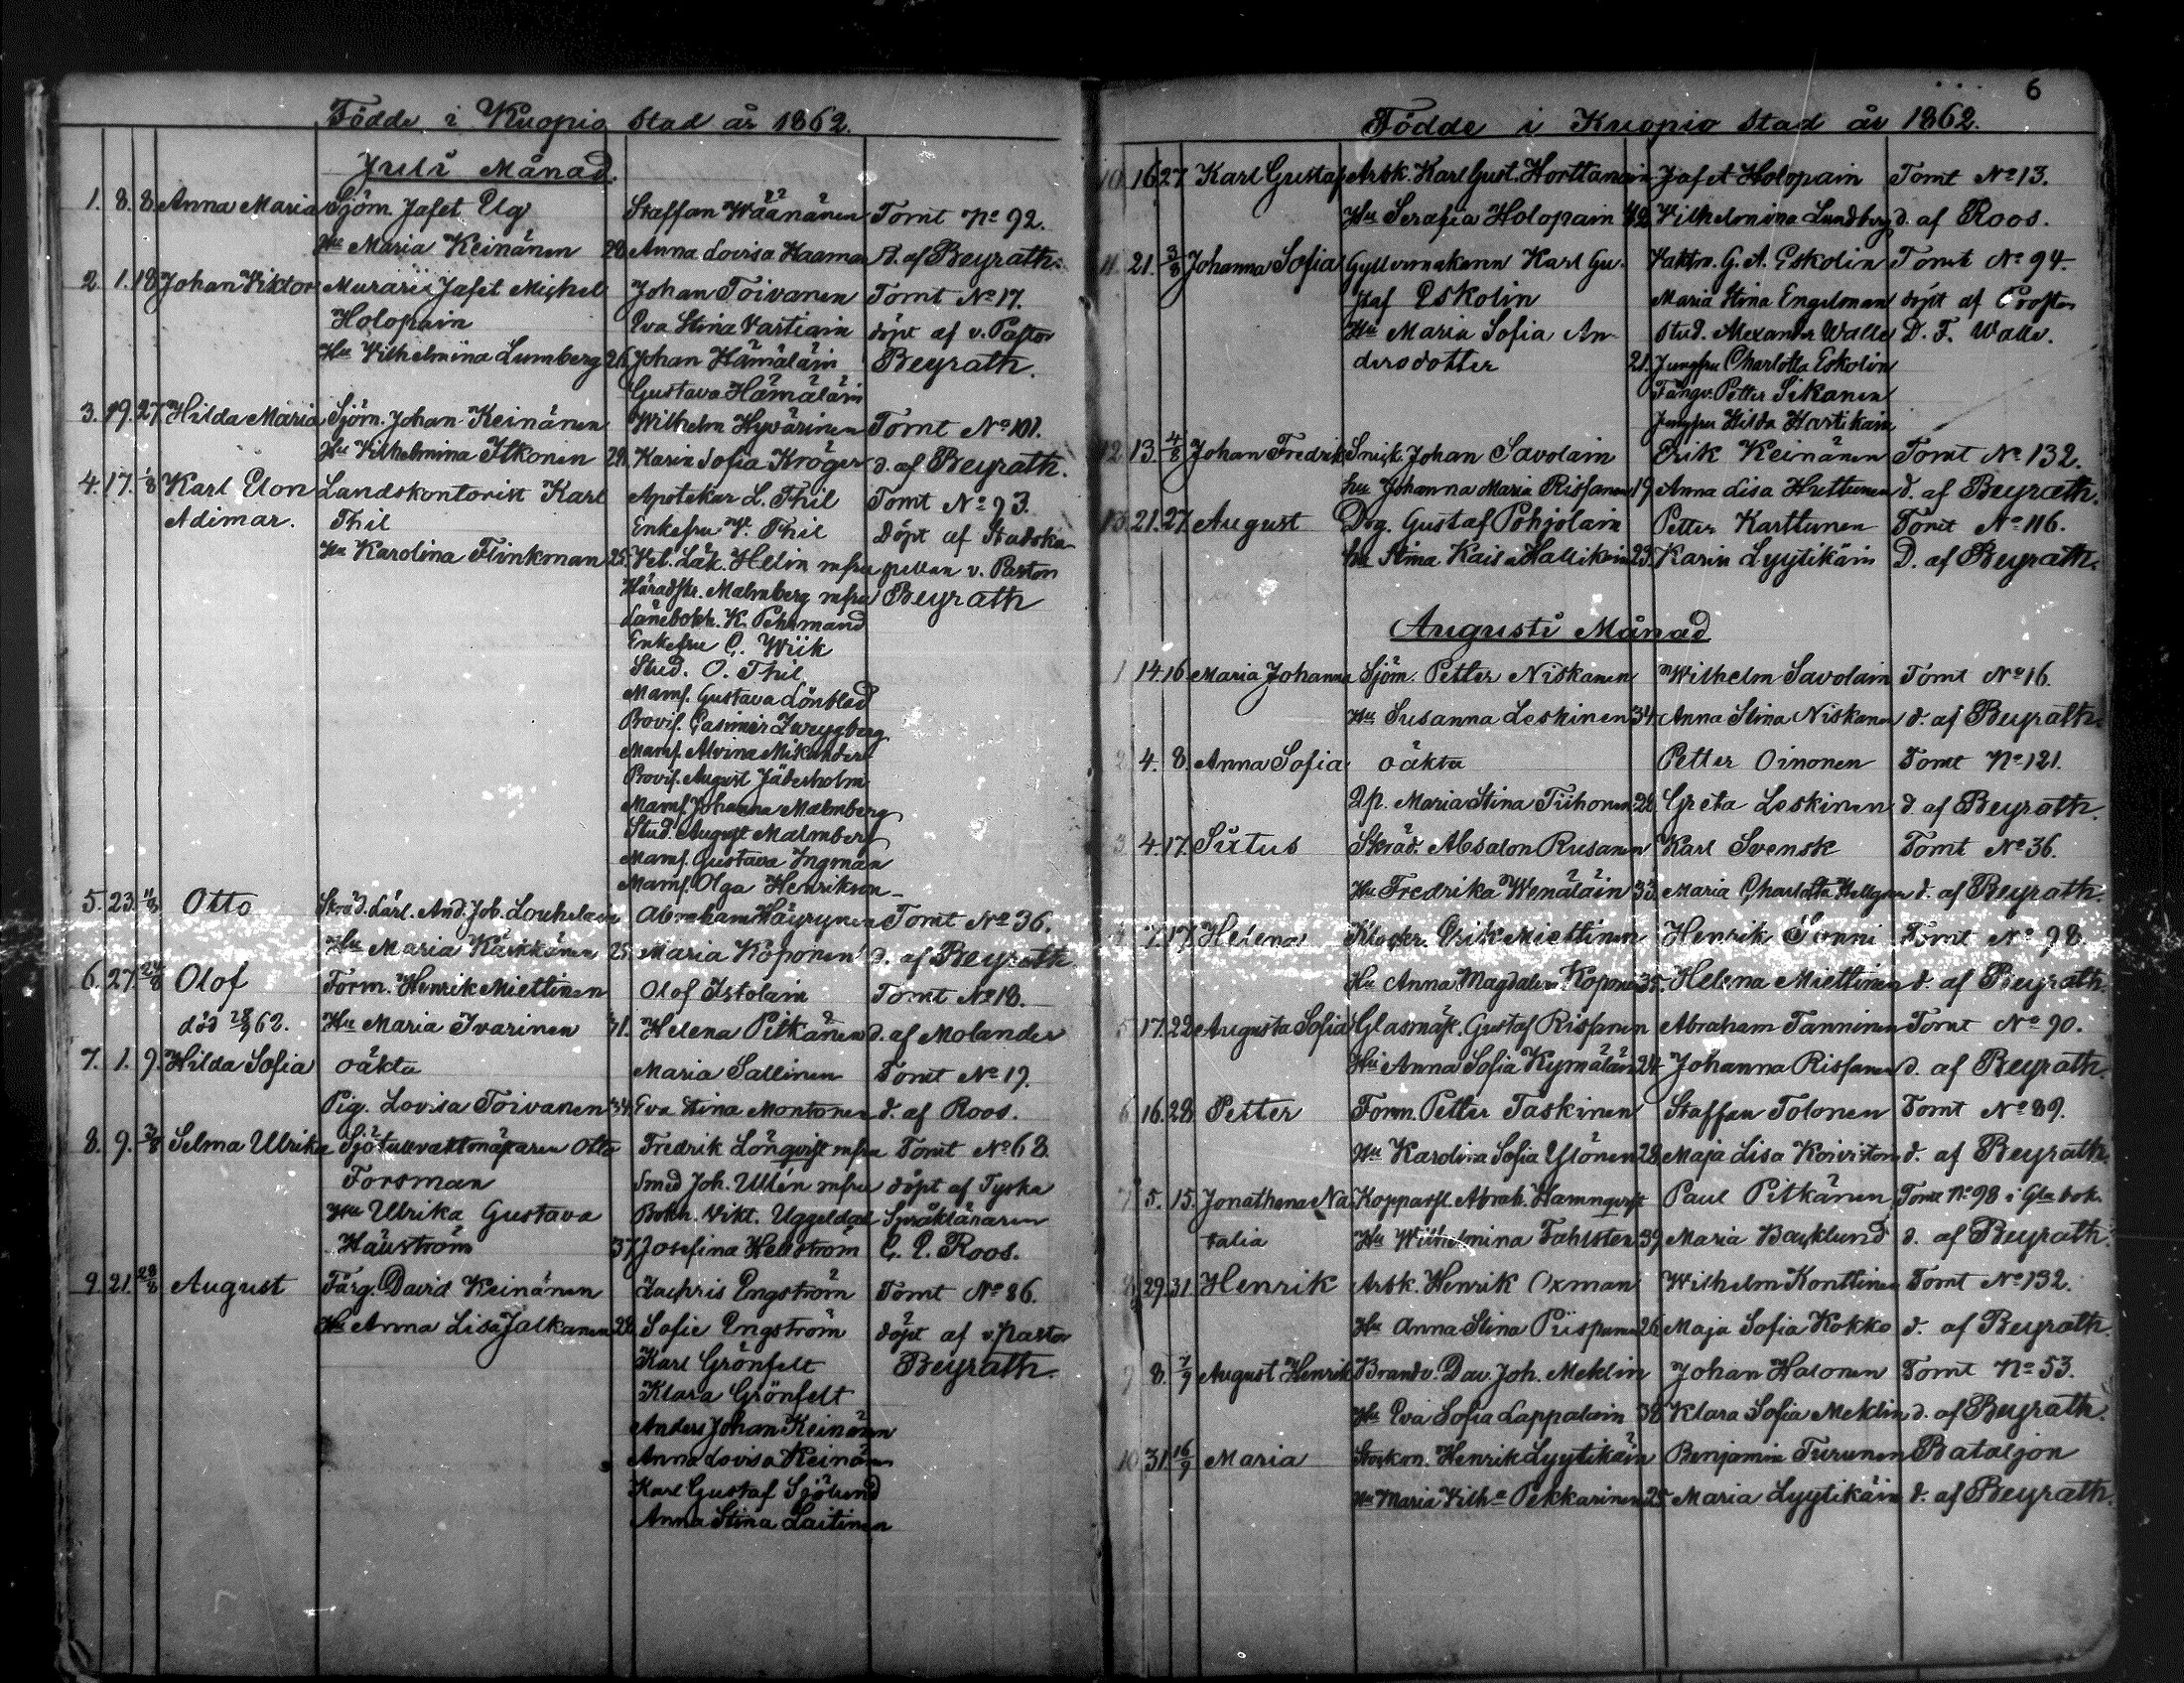 Födde i Kuopio Stad år 1862.
Juli Månad.
1. 8. 8. Anna Maria Sjöm. Jafet Ug Staffan Wäänänen Tomt No 92.
Hu Maria Keinänen 28. Anna Lovisa Haaman d. af Beyrath.
2. 1. 18. Johan Viktor Murare Jafet Michel Johan Toivanen Tomt No 17.
Holopain Eva Stina Vartiain döpt af v. Pastor
Hu Vilhelmina Lumberg 26. Johan Hämäläin Beyrath.
Gustava Hämäläin
3. 19. 27. Hilda Maria Sjöm. Johan Keinänen Wilhelm Hyvärinen Tomt No 101.
Hu Vilhelmina Itkonen 29. Karin Sofia Kröger d. af Beyrath.
4. 17. 1/8 Karl Elon Landskontorist Karl Apotekar L. Thil Tomt No 93.
Adimar. Thil Enkefru V. Thil döpt af Stadska-
Hu Karolina Flinkman 25. Vet. Läk. Helin mfru pellan v. Pastor
Häradskr. Malmberg mfru Beyrath
Länebokh. K. Pehrmand
Enkefru C. Wiik
Stud. O. Thil
Mams. Gustava Lönblad
Provis. Casimir Zweygberg
Mams. Alvina Mikander
Provis. August Jäderholm
Mams. Johanna Malmberg
Stud. August Malmberg
Mams. Gustava Ingman
Mams. Olga Henrikson
5. 23. 11/8 Otto Skräd. Lärl. And. Joh. Louhelain Abraham Häyrynen Tomt No 36.
Hu Maria Kärkkänen 25. Maria Koponen d. af Beyrath
6. 27. 24/8 Olof Form. Henrik Miettinen Olof Istolain Tomt No 18.
död 28/9 62. Hu Maria Ivarinen 31. Helena Pitkänen d. af Molander
7. 1. 9. Hilda Sofia oäkta Maria Sallinen Tomt No 19.
Pig. Lovisa Toivanen 34. Eva Stina Montonen d. af Roos.
8. 9. 3/8 Selma Ulrika Sjötullvaktmästaren Otto Fredrik Lönqvist mfru Tomt No 68.
Forsman Smed Joh. Ullén mfru döpt af Tyska
Hu Ulrika Gustava Bokh. Vikt. Uggeldal Språkläraren
Häuström 37. Josefina Hellström C. E. Roos.
9. 21. 28/8 August Färg. David Keinänen Zachris Engström Tomt No 86.
Hu Anna Lisa Jalkanen 28. Sofie Engström döpt af v Pastor
Karl Grönfelt Beyrath.
Klara Grönfelt
Anders Johan Keinänen
Anna Lovisa Keinänen
Karl Gustaf Sjölund
Anna Stina Laitinen
6
Födde i Kuopio Stad år 1862.
10. 16. 27 Karl Gustaf Arbk. Karl Gust. Horttanain Jafet Holopain Tomt No 13.
Hu Serafia Holopain 42. Vilhelmina Lundberg d. af Roos.
11. 21. 3/8 Johanna Sofia Gyllenmakaren Karl Gu- Vaktm. G. A. Eskolin Tomt No 94.
staf Eskolin Maria Stina Engelman döpt af Prosten
Hu Maria Sofia An- Stud. Alexander Walle D. F. Walle.
dersdotter 21. Jungfru Charlotta Eskolin
Fångv. Petter Sikanen
Jungfru Hilda Hartikain
12. 13. 4/8 Johan Fredrik Snick. Johan Savolain Erik Keinänen Tomt No 132.
hu Johanna Maria Rissanen 19. Anna Lisa Huttunen d. af Beyrath.
13. 21. 27. August Drg. Gustaf Pohjolain Petter Karttunen Tomt No 116.
hu Stina Kaisa Hallikain 23. Karin Lyytikäin D. af Beyrath.
Augusti Månad
1 14. 16. Maria Johanna Sjöm. Petter Niskanen Wilhelm Savolain Tomt No 16.
Hu Susanna Leskinen 34. Anna Stina Niskanen d. af Beyrath.
2 4. 8. Anna Sofia oäkta Petter Oinonen Tomt No 121.
Qp. Maria Stina Tiihonen 28. Greta Leskinen d. af Beyrath.
3 4. 17. Sixtus Skräd. Absalon Rusanen Karl Svensk Tomt No 36.
Hu Fredrika Wenäläin 33. Maria Charlotta Hellgren d. af Beyrath.
4 7. 17. Helena Klockr. Erik Miettinen Henrik Sonni Tomt No 98
Hu Anna Magdalena Koponen 35. Helena Miettinen d. af Beyrath.
5 17. 22 Augusta Sofia Glasmäst. Gustaf Rissanen Abraham Tanninen Tomt No 90.
Hu Anna Sofia Kymäläin 24. Johanna Rissanen d. af Beyrath.
6 16. 28 Petter Form. Petter Taskinen Staffan Tolonen Tomt No 89.
Hu Karolina Sofia Ylönen 28. Maja Lisa Koiviston d. af Beyrath.
7 5. 15. Jonathana Na- Kopparsl. Abrah. Hamnqvist Paul Pitkänen Tomt No 98 i Gla bok.
talia Hu Wilhelmina Fahlsten 39. Maria Backlund d. af Beyrath.
8 29. 31. Henrik Arbk. Henrik Oxman Wilhelm Konttinen Tomt No 132.
Hu Anna Stina Piispanen 26. Maja Sofia Kokko d. af Beyrath.
9 8. 7/9 August Henrik Brandv. Dav. Joh. Meklin Johan Halonen Tomt No 53.
Hu Eva Sofia Lappalain 38. Klara Sofia Meklin d. af Beyrath.
10 31. 16/9 Maria Stockm. Henrik Lyytikäin Benjamin Turunen Bataljon
Hu Maria Vilha Pekkarinen 25. Maria Lyytikäin d. af Beyrath.